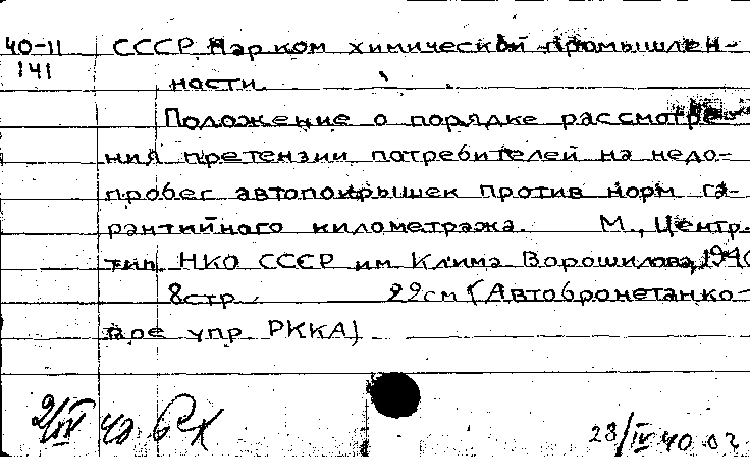 40-11 СССР. Нарком химической промышлен-
141 ности.
Положение о порядке рассмотре-
ния претензии потребителей на недо-
пробег автопокрышек против норм га-
рантийного километража. М., Центр.
тип. НКО СССР им Клима Ворошилова, 1940
8 стр. 22 см (Автобронетанко-
вое упр РККА)
28/IV 40